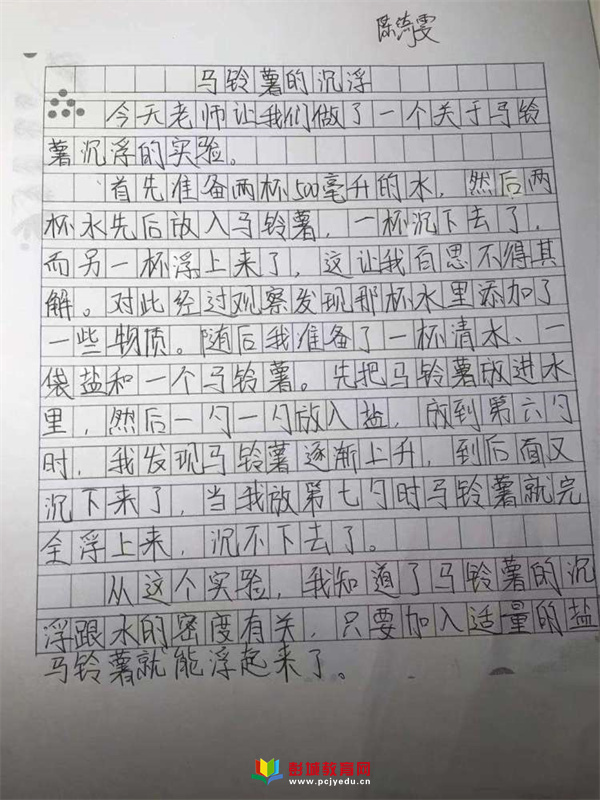 陈绮雯
马铃薯的沉浮
今天老师让我们做了一个关于马铃
薯沉浮的实验。
首先准备两杯500毫升的水，然后两
杯水先后放入马铃薯，一杯沉下去了，
而另一杯浮上来了，这让我百思不得其
解。对此经过观察发现那杯水里添加了
一些物质。随后我准备了一杯清水、一
袋盐和一个马铃薯。先把马铃薯放进水
里，然后一勺一勺放入盐，放到第六勺
时，我发现马铃薯逐渐上升，到后面又
沉下来了，当我放第七勺时马铃薯就完
全浮上来，沉不下去了。
从这个实验，我知道了马铃薯的沉
浮跟水的密度有关，只要加入适量的盐
马铃薯就能浮起来了。
彭城教育网
www.pcjyedu.cn